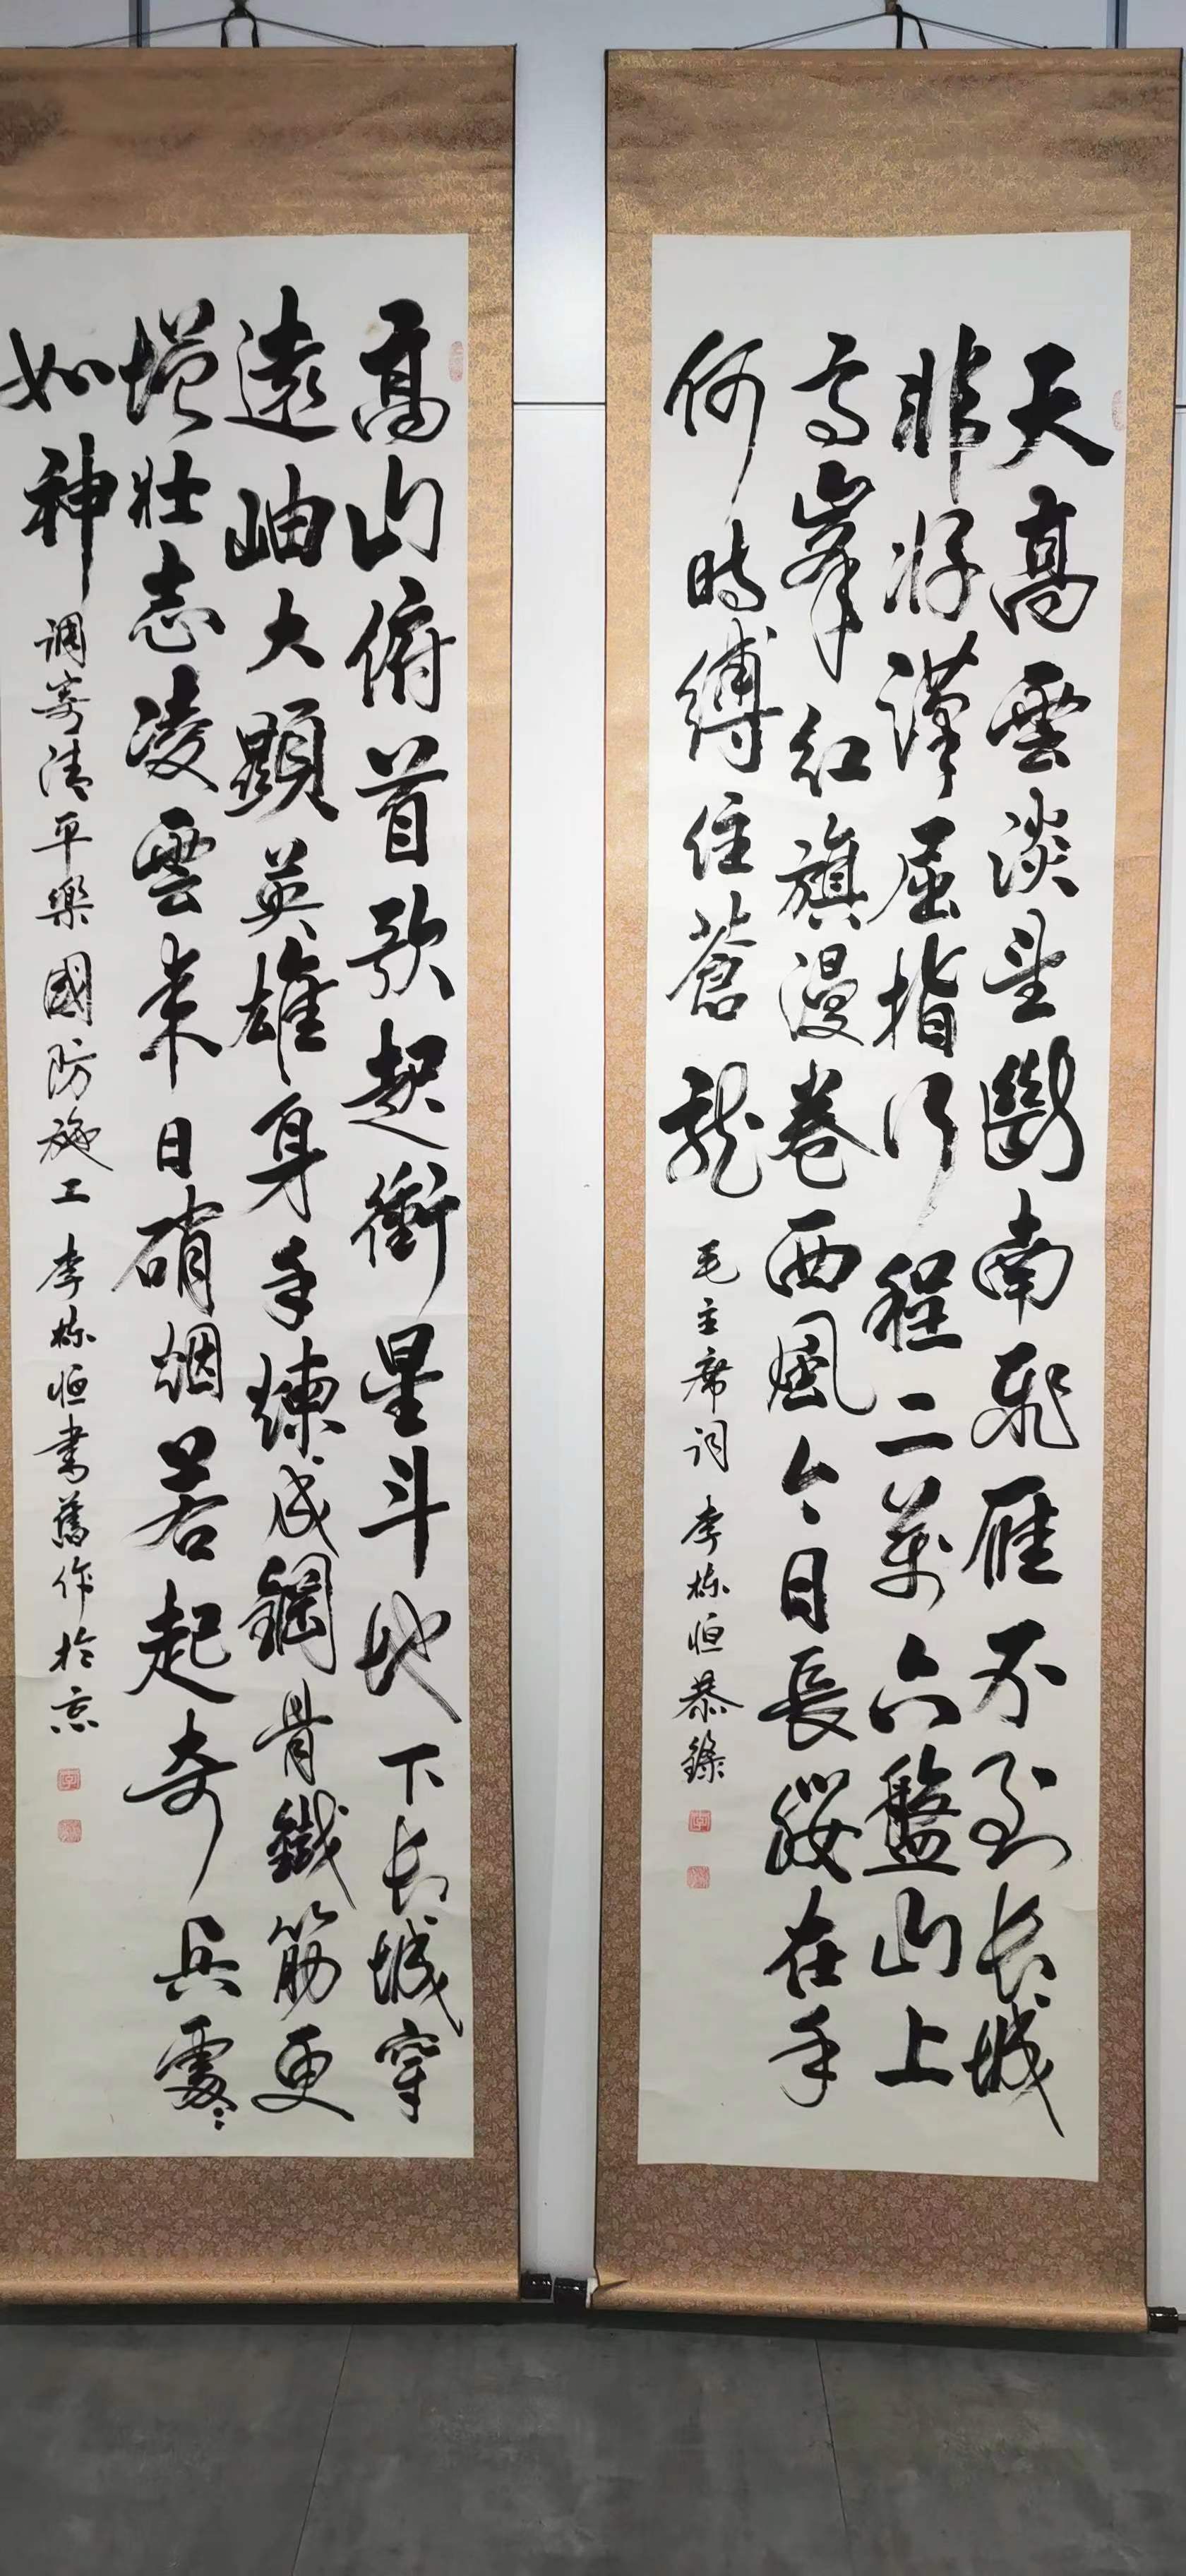 天高雲淡望斷南飛雁不到长城
非好漢屈指行程二萬六盤山上
高峯紅旗漫卷西風今日長纓在手
何時縛住蒼龍 毛主席词 李栋恒恭錄
高山俯首歌起衝星斗地下长城穿
遠岫大顯英雄身手煉成鋼骨鐵筋更
增壮志凌雲来日硝烟若起奇兵處々
如神 调寄清平樂國防施工 李栋恒書舊作於京